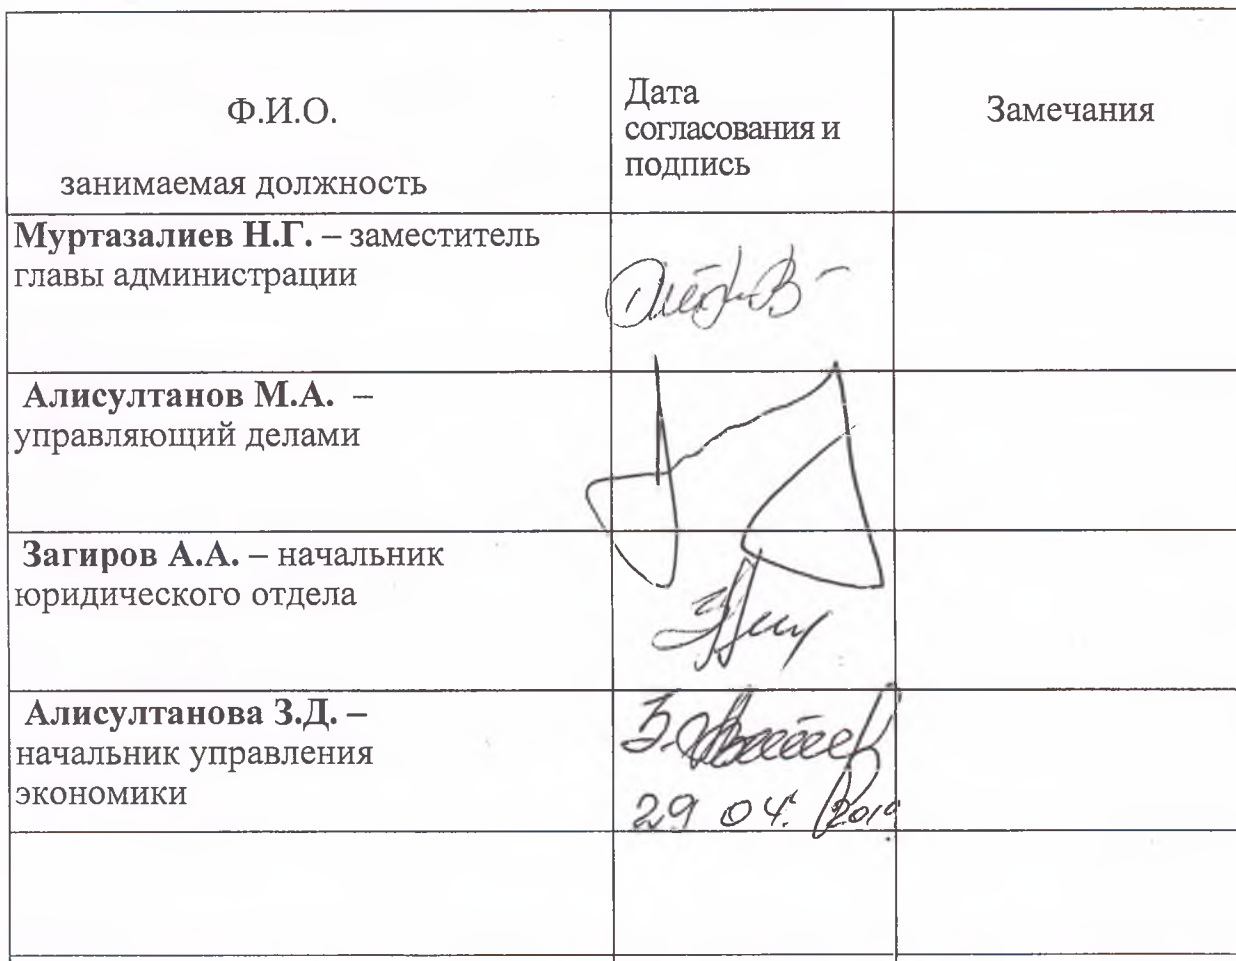 Ф.И.О.
занимаемая должность
Дата
согласования и
подпись
Замечания
Муртазалиев Н.Г. – заместитель
главы администрации
Алисултанов М.А. –
управляющий делами
Загиров А.А. – начальник
юридического отдела
Алисултанова З.Д. –
начальник управления
экономики
29 04.